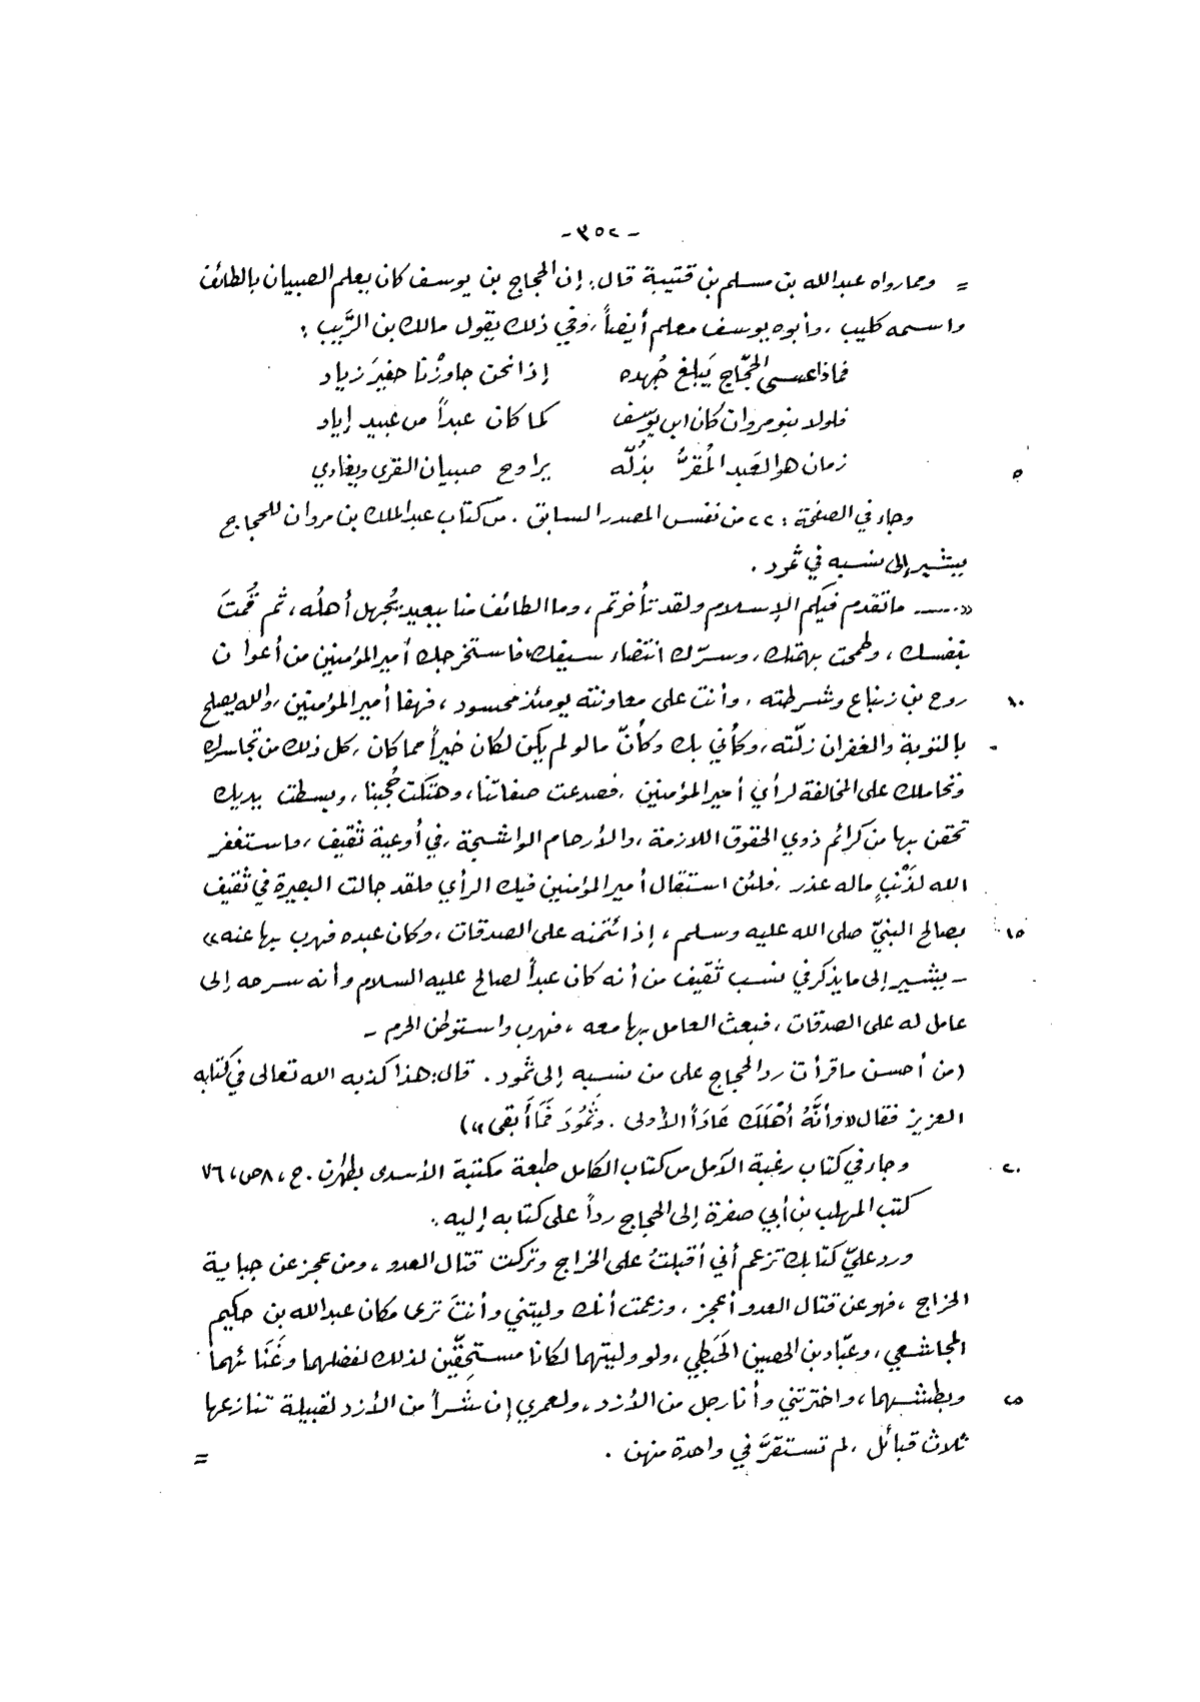 - ٣٥٢ -
= ومما رواه عبدالله بن مسلم بن قتيبة قال: إن الحجاج بن يوسف كان يعلم الصبيان بالطائف
واسمه كليب، وأبوه يوسف معلم أيضاً، وفي ذلك يقول مالك بن الرَّيب:
فماذا عسى الحجّاج يَبلغ جُهده إذا نحن جاوزْنا حفيرَ زياد
فلولا بنو مروان كان ابن يوسف كما كان عبداً من عبيد إياد
زمان هو العَبد المُقرُّ بذُلّه يراوح صبيان القرى ويغادي
٥
وجاء في الصفحة: ٢٢ من نفس المصدر السابق. من كتاب عبدالملك بن مروان للحجاج
يشير إلى نسبه في ثمود.
«..... ما تقدم فيكم الإسلام ولقد تأخرتم، وما الطائف منا ببعيد يُجهل أهلُه، ثم قُمتَ
بنفسك، وطمحت بهمتك، وسرّك انتضاء سيفك، فاستخرجك أمير المؤمنين من أعوان
١٠ روح بن زنباع وشرطته، وأنت على معاونته يومئذ محسود، فهفا أمير المؤمنين، والله يصلح
بالتوبة والغفران زلّته، وكأني بك وكأنّ ما لو لم يكن لكان خيراً مما كان، كل ذلك من تجاسرك
وتحاملك على المخالفة لرأي أمير المؤمنين، فصدعت صفاتنا، وهتكت حُجبنا، وبسطت يديك
تحقن بها من كرائم ذوي الحقوق اللازمة، والأرحام الواشجة، في أوعية ثقيف، فاستغفر
الله لذَنْبٍ ماله عذر، فلئن استقال أمير المؤمنين فيك الرأي فلقد جالت البصيرة في ثقيف
١٥ بصالح النبيّ صلى الله عليه وسلم، إذ ائتمنه على الصدقات، وكان عبده فهرب بها عنه»
- يشير إلى ما يذكر في نسب ثقيف من أنه كان عبداً لصالح عليه السلام وأنه سرحه إلى
عامل له على الصدقات، فبعث العامل بها معه، فهرب واستوطن الحرم -
(من أحسن ما قرأت رد الحجاج على من نسبه إلى ثمود. قال: هذا كذبه الله تعالى في كتابه
العزيز فقال «وأنَّهُ أهْلَكَ عَادَاً الأولى. وثَمُودَ فَمَا أَبقى»)
٢٠ وجاء في كتاب رغبة الآمل من كتاب الكامل طبعة مكتبة الأسدى بطهران. ج، ٨ ص، ٧٦
كتب المهلب بن أبي صفرة إلى الحجاج رداً على كتابه إليه:
ورد عليّ كتابك تزعم أني أقبلتُ على الخراج وتركت قتال العدو، ومن عجز عن جباية
الخراج، فهو عن قتال العدو أعجز، وزعمت أنك وليتني وأنتَ ترى مكان عبدالله بن حكيم
المجاشعي، وعبّاد بن الحصين الحَبَطي، ولو وليتهما لكانا مستحِقّين لذلك لفضلهما وغَنَائهما
٢٥ وبطشهما، واخترتني وأنا رجل من الأزد، ولعمري إن شراً من الأزد لقبيلة تنازعها
ثلاث قبائل، لم تستقرَّ في واحدة منهن. =